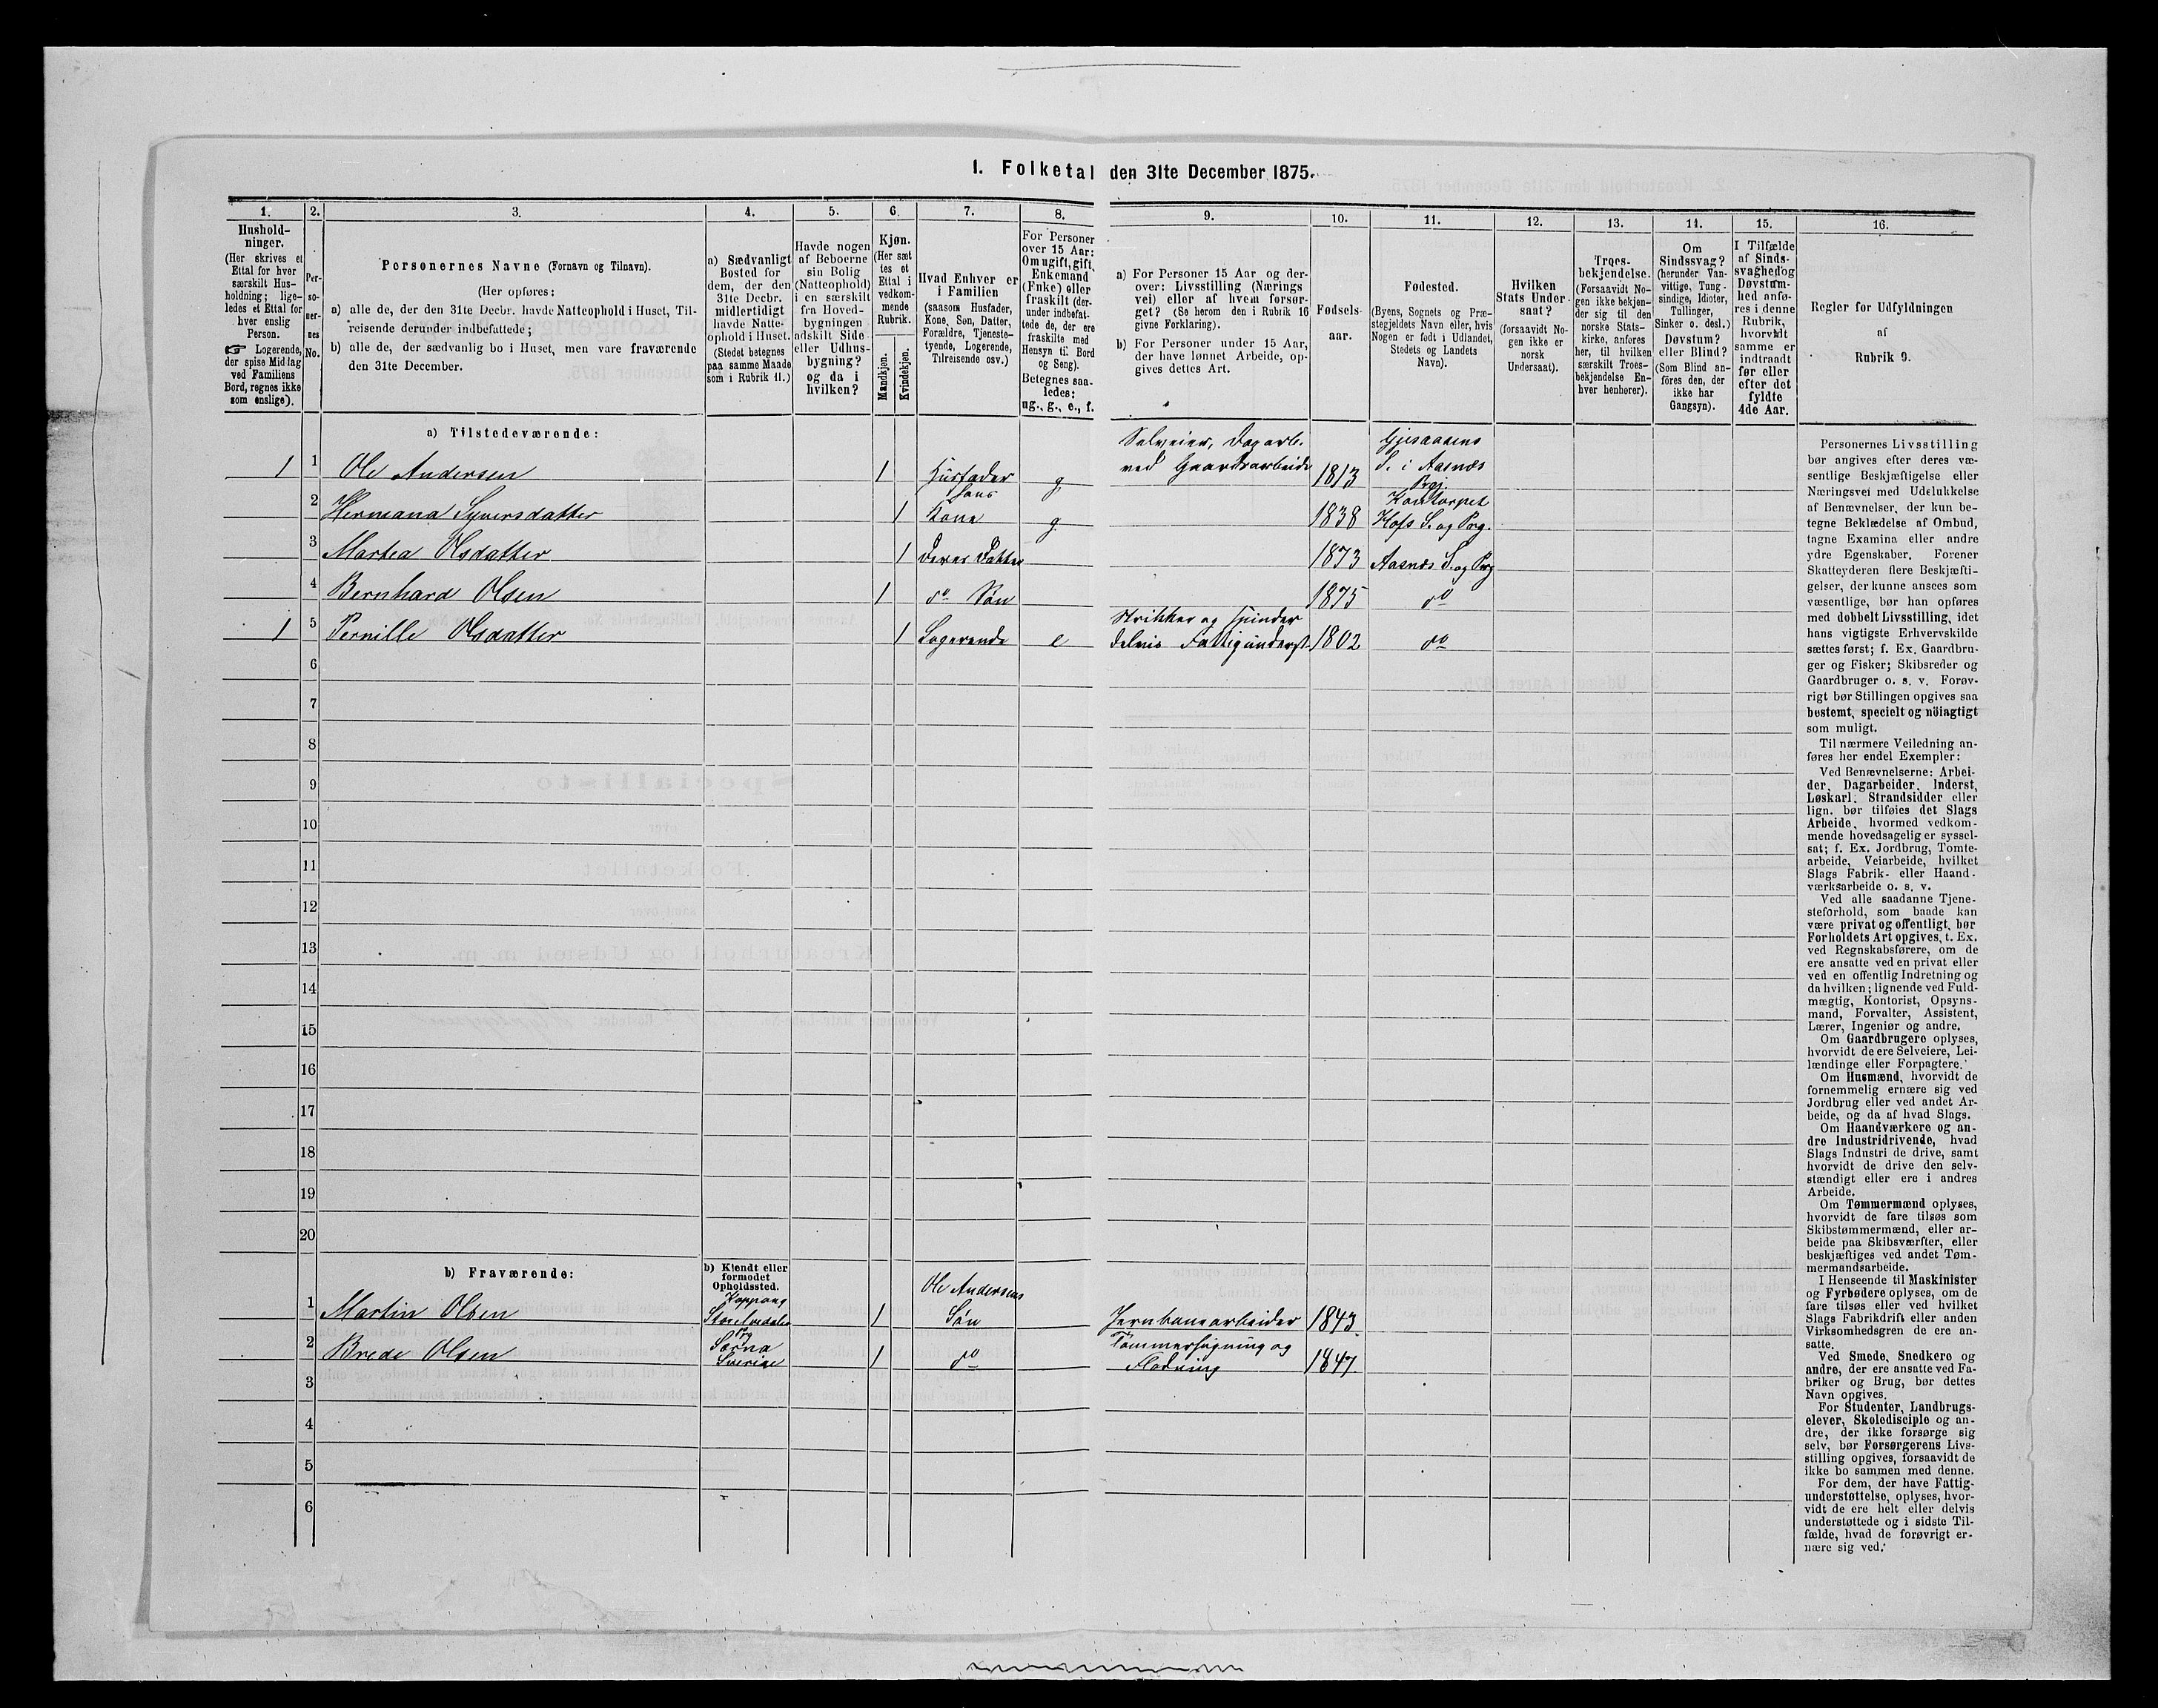 I. Folketal den 31te December 1875.
1. 2. 3. 4. 5. 6. 7. 8. 9. 10. 11. 12. 13. 14. 15. 16.
Hushold-
ninger.
(Her skrives et
Ettal for hver
særskilt Hus-
holdning; lige-
ledes et Ettal for
hver enslig
Person.
☞ Logerende,
der spise Middag
ved Familiens
Bord, regnes ikke
som enslige).
Per-
so-
ner-
nes
No.
Personernes Navne (Fornavn og Tilnavn).
(Her opføres:
a) alle de, der den 31te Decbr. havde Natteophold i Huset, Til-
reisende derunder indbefattede;
b) alle de, der sædvanlig bo i Huset, men vare fraværende
den 31te December.
a) Sædvanligt
Bosted for
dem, der den
31te Decbr.
midlertidigt
havde Natte-
ophold i Huset.
(Stedet betegnes
paa samme Maade
som i Rubrik 11.)
Havde nogen
af Beboerne
sin Bolig
(Natteophold)
i en særskilt
fra Hoved-
bygningen
adskilt Side-
eller Udhus-
bygning?
og da i
hvilken?
Kjøn.
(Her sæt
tes et
Ettal i
vedkom-
mende
Rubrik.
Mandkjøn.
Kvindekjøn.
Hvad Enhver er
i Familien
(saasom Husfader,
Kone, Søn, Datter,
Forældre, Tjeneste-
tyende, Logerende,
Tilreisende osv.)
For Personer
over 15 Aar:
Om ugift, gift,
Enkemand
(Enke) eller
fraskilt (der-
under indbefat-
tede de, der ere
fraskilte med
Hensyn til Bord
og Seng).
Betegnes saa-
ledes:
ug., g., e., f.
a) For Personer 15 Aar og der-
over: Livsstilling (Nærings
vei) eller af hvem forsør-
get? (Se herom den i Rubrik 16
givne Forklaring).
b) For Personer under 15 Aar,
der have lønnet Arbeide, op-
gives dettes Art.
Fødsels-
aar.
Fødested.
(Byens, Sognets og Præ-
stegjeldets Navn eller, hvis
Nogen er født i Udlandet,
Stedets og Landets
Navn).
Hvilken
Stats Under-
saat?
(forsaavidt No-
gen ikke er
norsk
Undersaat).
Troes-
bekjendelse.
(Forsaavidt No-
gen ikke bekjen-
der sig til den
norske Stats-
kirke, anføres
her, til hvilken
særskilt Troes-
bekjendelse En-
hver henhører).
Om
Sindssvag?
(herunder Van-
vittige, Tung-
sindige, Idioter,
Tullinger,
Sinker o. desl.)
Døvstum?
eller Blind?
(Som Blind an-
føres den, der
ikke har
Gangsyn).
I Tilfælde
af Sinds-
svaghed og
Døvstum-
hed anfø-
res i denne
Rubrik,
hvorvidt
samme er
indtraadt
før eller
efter det
fyldte
4de Aar.
Regler for Udfyldningen
af
Rubrik 9.
a) Tilstedeværende:
1 1 Ole Andersen 1 Husfader g Selveier, Dagarb. ved Gaardsarbeide 1813 Gjesaasens S. i Aasnæs Prgj.
2 Hermana Syversdatter 1 hans Kone g 1838 Kontorpet Hofs S. og Prg.
3 Martea Olsdatter 1 Deres Datter 1873 Aasnæs S. og Prg
4 Bernhard Olsen 1 do Søn 1875 do
1 5 Pernille Olsdatter 1 Logerende e Strikker og spinder delvis Fattigunderst. 1802 do
6
7
8
9
10
11
12
13
14
15
16
17
18
19
20
b) Fraværende:
b) Kjendt eller
formodet
Opholdssted.
1 Martin Olsen Koppang Storelvedalen Prg 1 Ole Andersens Søn Jernbanearbeider 1843
2 Brede Olsen Særna Sverige 1 do Tømmerhugning og Flødning 1847
3
4
5
6
Personernes Livsstilling
bør angives efter deres væ-
sentlige Beskjæftigelse eller
Næringsvei med Udelukkelse
af Benævnelser, der kun be-
tegne Beklædelse af Ombud,
tagne Examina eller andre
ydre Egenskaber. Forener
Skatteyderen flere Beskjæfti-
gelser, der kunne ansees som
væsentlige, bør han opføres
med dobbelt Livsstilling, idet
hans vigtigste Erhvervskilde
sættes først; f. Ex. Gaardbru-
ger og Fisker; Skibsreder og
Gaardbruger o. s. v. Forøv-
rigt bør Stillingen opgives saa
bestemt, specielt og nöiagtigt
som muligt.
Til nærmere Veiledning an-
føres her endel Exempler:
Ved Benævnelserne: Arbei-
der, Dagarbeider, Inderst,
Løskarl, Strandsidder eller
lign. bør tilføies det Slags
Arbeide, hvormed vedkom-
mende hovedsagelig er syssel-
sat; f. Ex. Jordbrug, Tomte-
arbeide, Veiarbeide, hvilket
Slags Fabrik- eller Haand-
værksarbeide o. s. v.
Ved alle saadanne Tjene-
steforhold, som baade kan
være privat og offentligt, bør
Forholdets Art opgives, t. Ex.
ved Regnskabsførere, om de
ere ansatte ved en privat eller
ved en offentlig Indretning og
da hvilken; lignende ved Fuld-
mægtig, Kontorist, Opsyns-
mand, Forvalter, Assistent,
Lærer, Ingeniør og andre.
Om Gaardbrugere oplyses,
hvorvidt de ere Selveiere, Lei-
lændinge eller Forpagtere.
Om Husmænd, hvorvidt de
fornemmelig ernære sig ved
Jordbrug eller ved andet Ar-
beide, og da af hvad Slags.
Om Haandværkere og an-
dre Industridrivende, hvad
Slags Industri de drive, samt
hvorvidt de drive den selv-
stændigt eller ere i andres
Arbeide.
Om Tømmermænd oplyses,
hvorvidt de fare tilsøs som
Skibstømmermænd, eller ar-
beide paa Skibsværfter, eller
beskjæftiges ved andet Tøm-
mermandsarbeide.
I Henseende til Maskinister
og Fyrbødere oplyses, om de
fare tilsøs eller ved hvilket
Slags Fabrikdrift eller anden
Virksomhedsgren de ere an-
satte.
Ved Smede, Snedkere og
andre, der ere ansatte ved Fa-
briker og Brug, bør dettes
Navn opgives.
For Studenter, Landbrugs-
elever, Skoledisciple og an-
dre, der ikke forsørge sig
selv, bør Forsørgerens Livs-
stilling opgives, forsaavidt de
ikke bo sammen med denne.
For dem, der have Fattig-
understøttelse, oplyses, hvor-
vidt de ere helt eller delvis
understøttede og i sidste Til-
fælde, hvad de forøvrigt er-
nære sig ved.